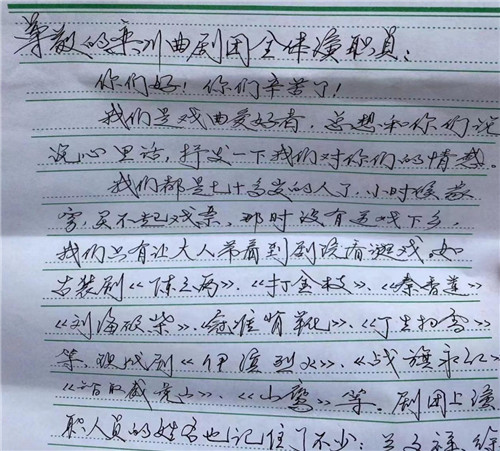 尊敬的栾川曲剧团全体演职员：
你们好！你们辛苦了！
我们是戏曲爱好者，总想和你们说
说心里话，抒发一下我们对你们的情感。
我们都是七十多岁的人了，小时候家
穷，买不起戏票，那时没有送戏下乡，
我们只有让大人带着到剧院看过戏。如
古装剧《陈三两》、《打金枝》、《秦香莲》
《刘海砍柴》、《寇准背靴》、《丁生扫雪》
等，现代剧《伊滨烈火》、《战旗永红》
《智取威虎山》、《山鹰》等。剧团上演
职人员的姓名也记住了不少：文禄、徐